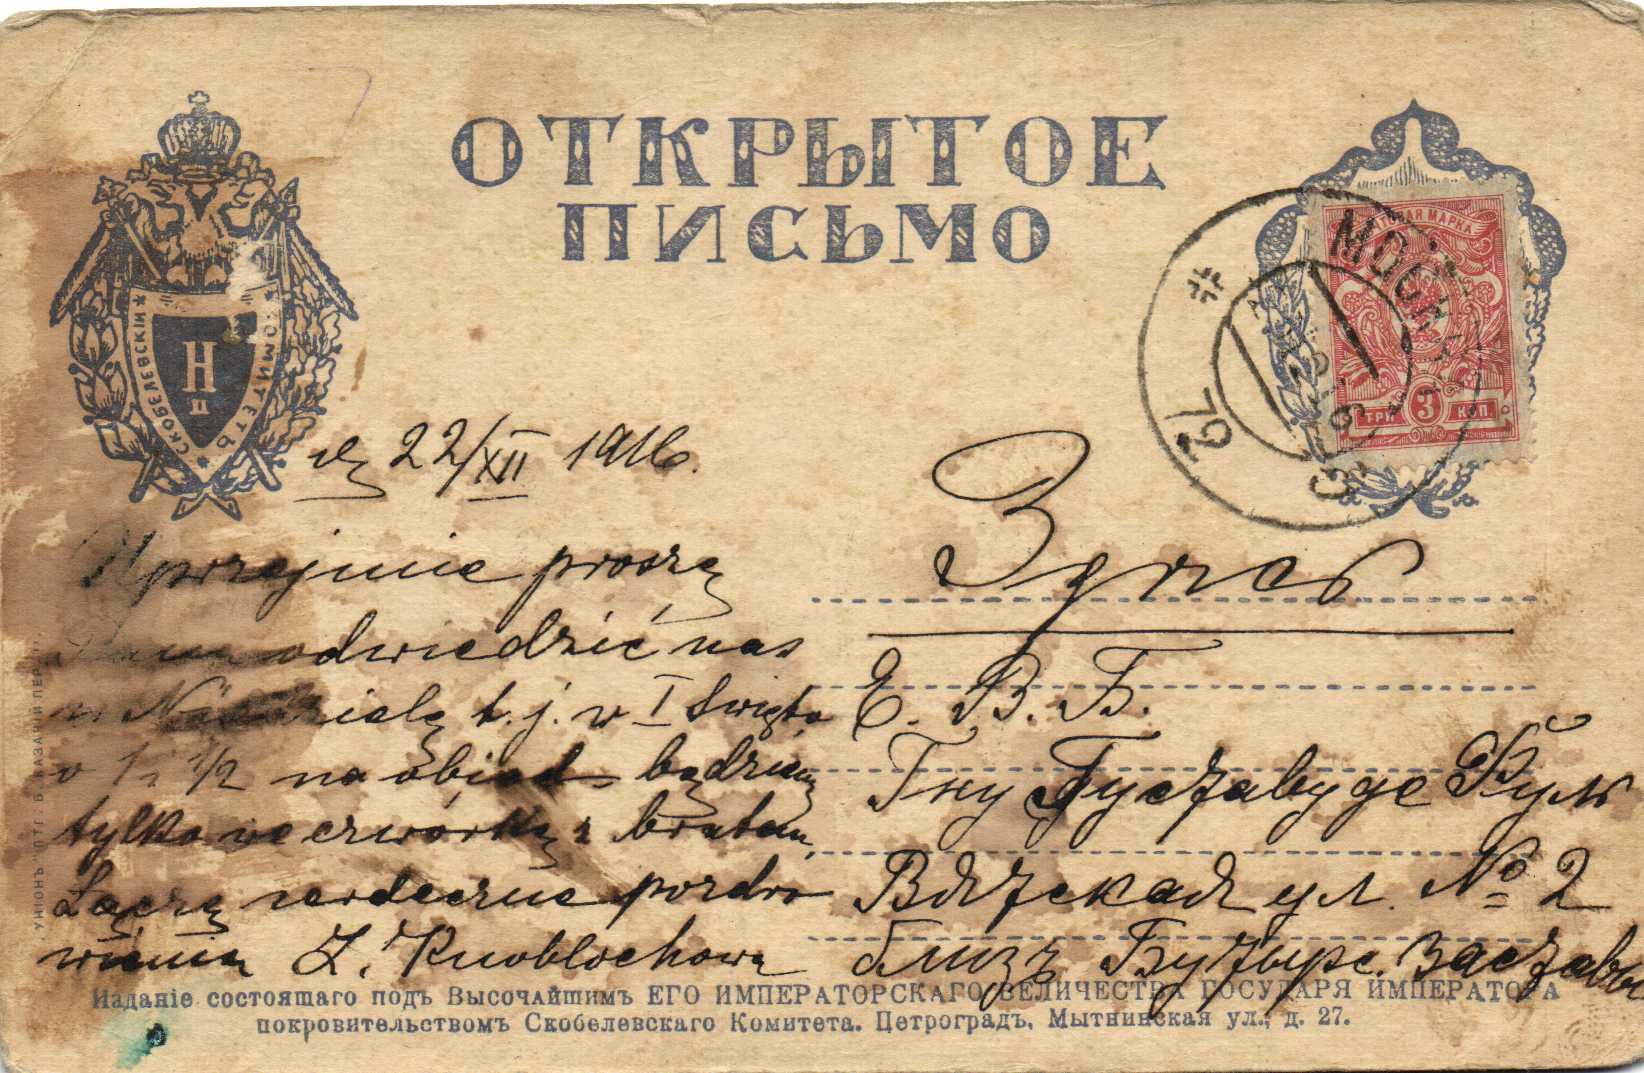 ОТКРЫТОЕ
ПИСЬМО
СКОБЕЛЕВСКІЙ КОМИТЕТЪ
Н
II
ПОЧТОВАЯ МАРКА
ТРИ 3 КОП.
МОСКВА
72
22/XII 1916.
Uprzejmie proszę
odwiedzić nas
w t. j. w I Święto
o 1 1/2 na obiad będziemy
tylko we czwórkę z bratem,
Łączę serdeczne pozdro
wienia Z. Knoblochowa
Здѣсь
Е. В. Б.
Гну Густаву де
Вятская ул. № 2
близъ Бутырс. Заставы
Изданіе состоящаго подъ Высочайшимъ ЕГО ИМПЕРАТОРСКАГО ВЕЛИЧЕСТВА ГОСУДАРЯ ИМПЕРАТОРА
покровительствомъ Скобелевскаго Комитета. Петроградъ, Мытнинская ул., д. 27.